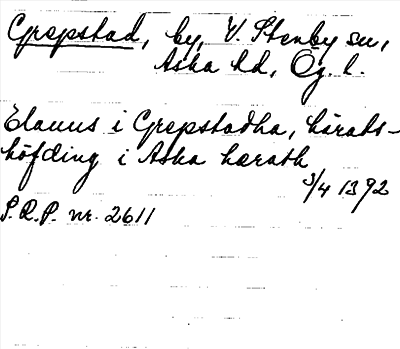 Grepstad, by, V. Stenby sn,
Aska hd, Ög. l.
Elauus i Grepstadha, härads-
höfding i Aska hærath
3/4 1392
S.R.P. nr. 2611